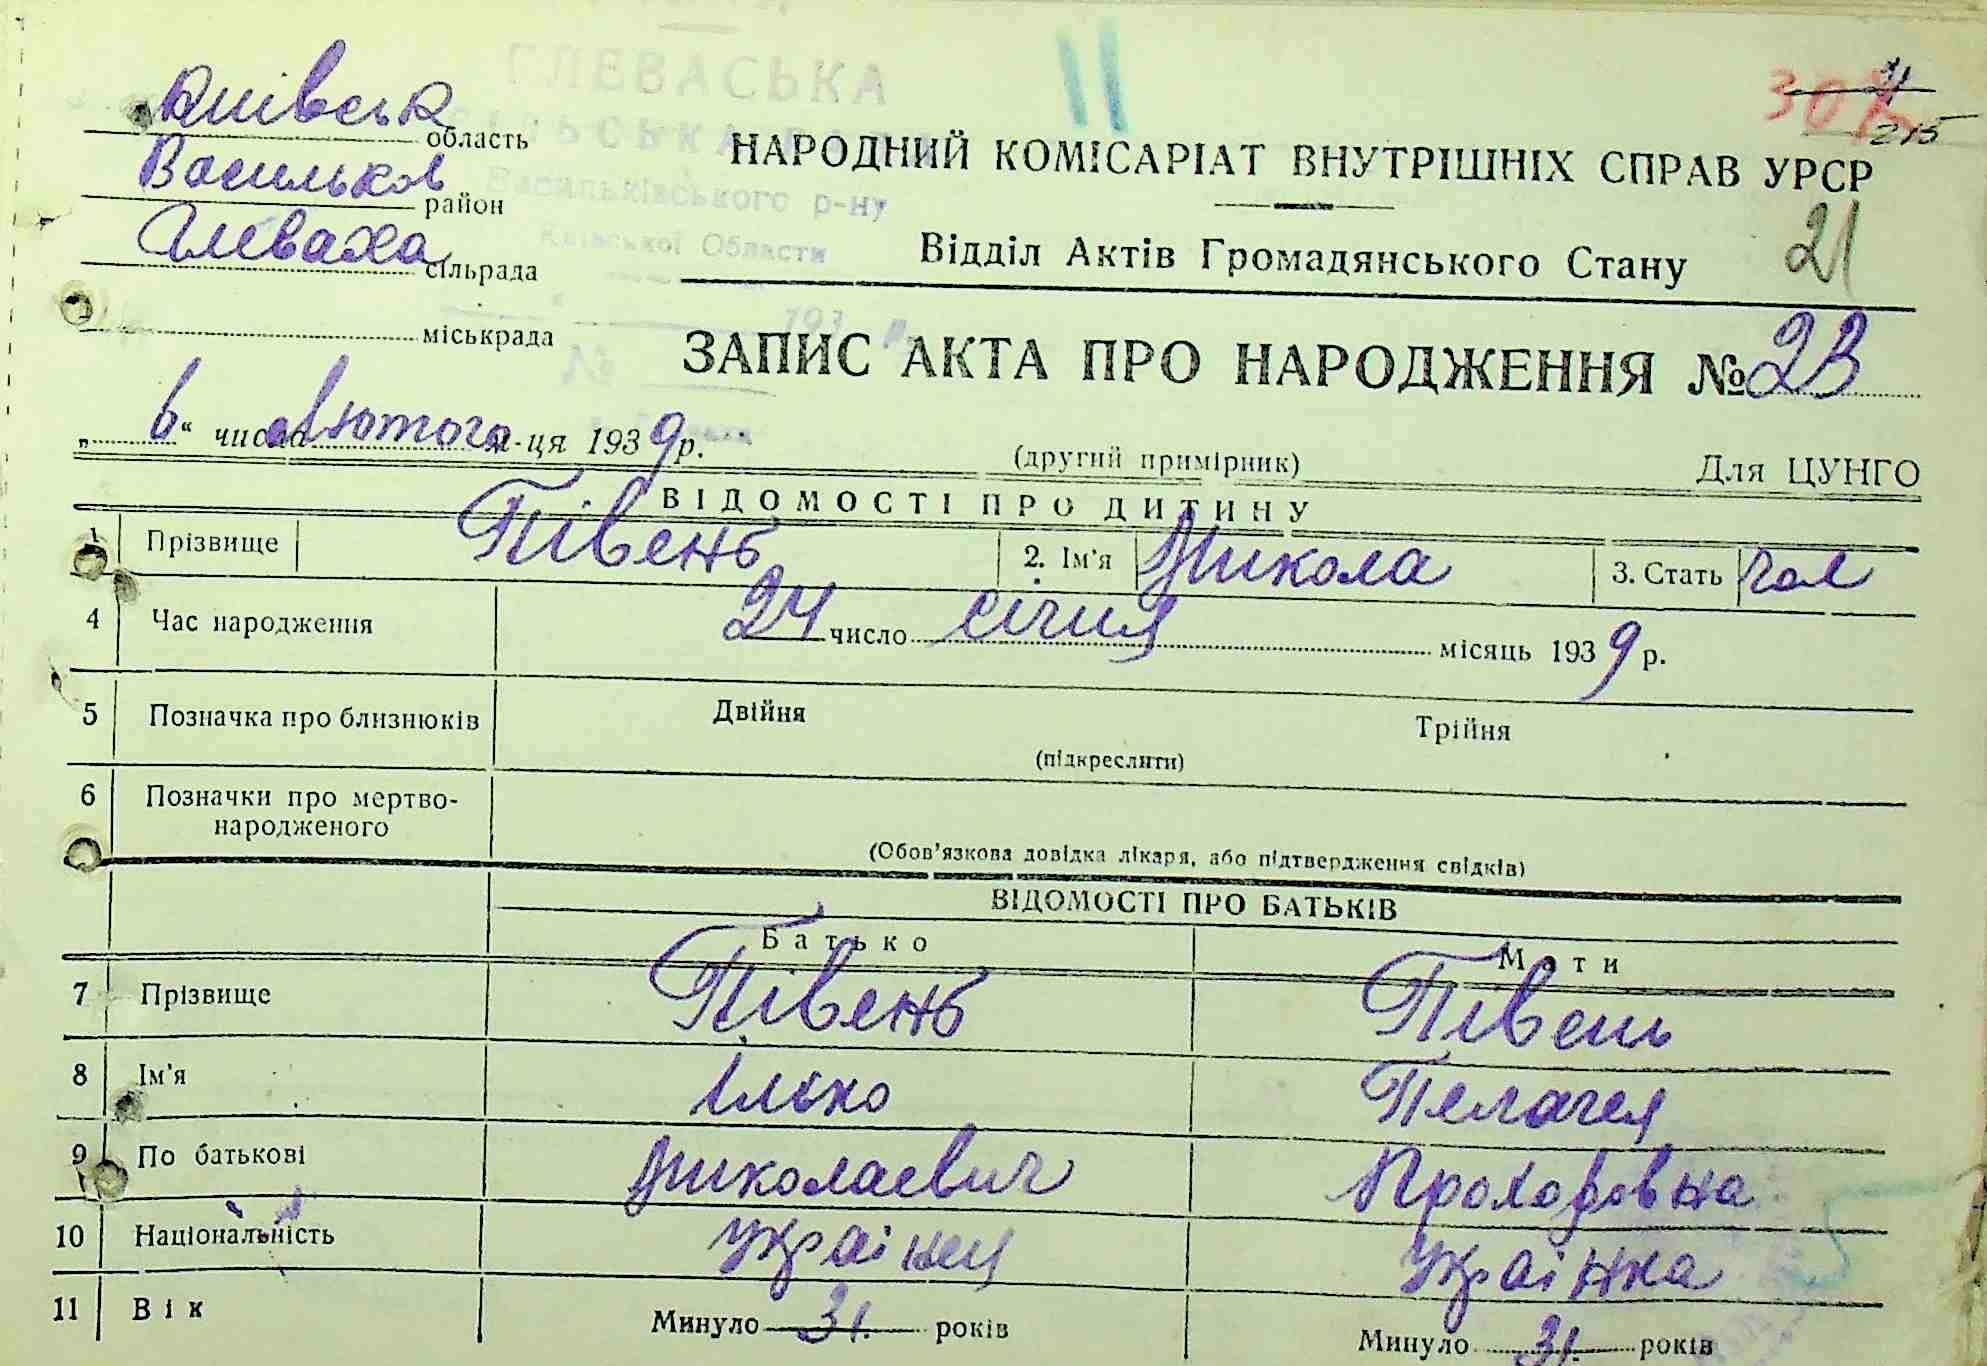 ГЛЕВАСЬКА
СІЛЬСЬКА РАДА
Васильківського р-ну
Київської Області
193 р.
№
11
307
215
Київськ область
Васильков район
Глеваха сільрада
міськрада
НАРОДНИЙ КОМІСАРІАТ ВНУТРІШНІХ СПРАВ УРСР
Відділ Актів Громадянського Стану
21
ЗАПИС АКТА ПРО НАРОДЖЕННЯ № 23
„6“ числа Лютого м-ця 1939 р.
(другий примірник)
Для ЦУНГО
ВІДОМОСТІ ПРО ДИТИНУ
1 Прізвище Півень 2. Ім'я Микола 3. Стать чол
4 Час народження 24 число січня місяць 1939 р.
5 Позначка про близнюків Двійня Трійня
(підкреслити)
6 Позначки про мертво-
народженого
(Обов'язкова довідка лікаря, або підтвердження свідків)
ВІДОМОСТІ ПРО БАТЬКІВ
Батько Мати
7 Прізвище Півень Півень
8 Ім'я Ілько Пелагея
9 По батькові Николаевич Прохоровна
10 Національність Українец Українка
11 Вік Минуло 31. років Минуло 31. років